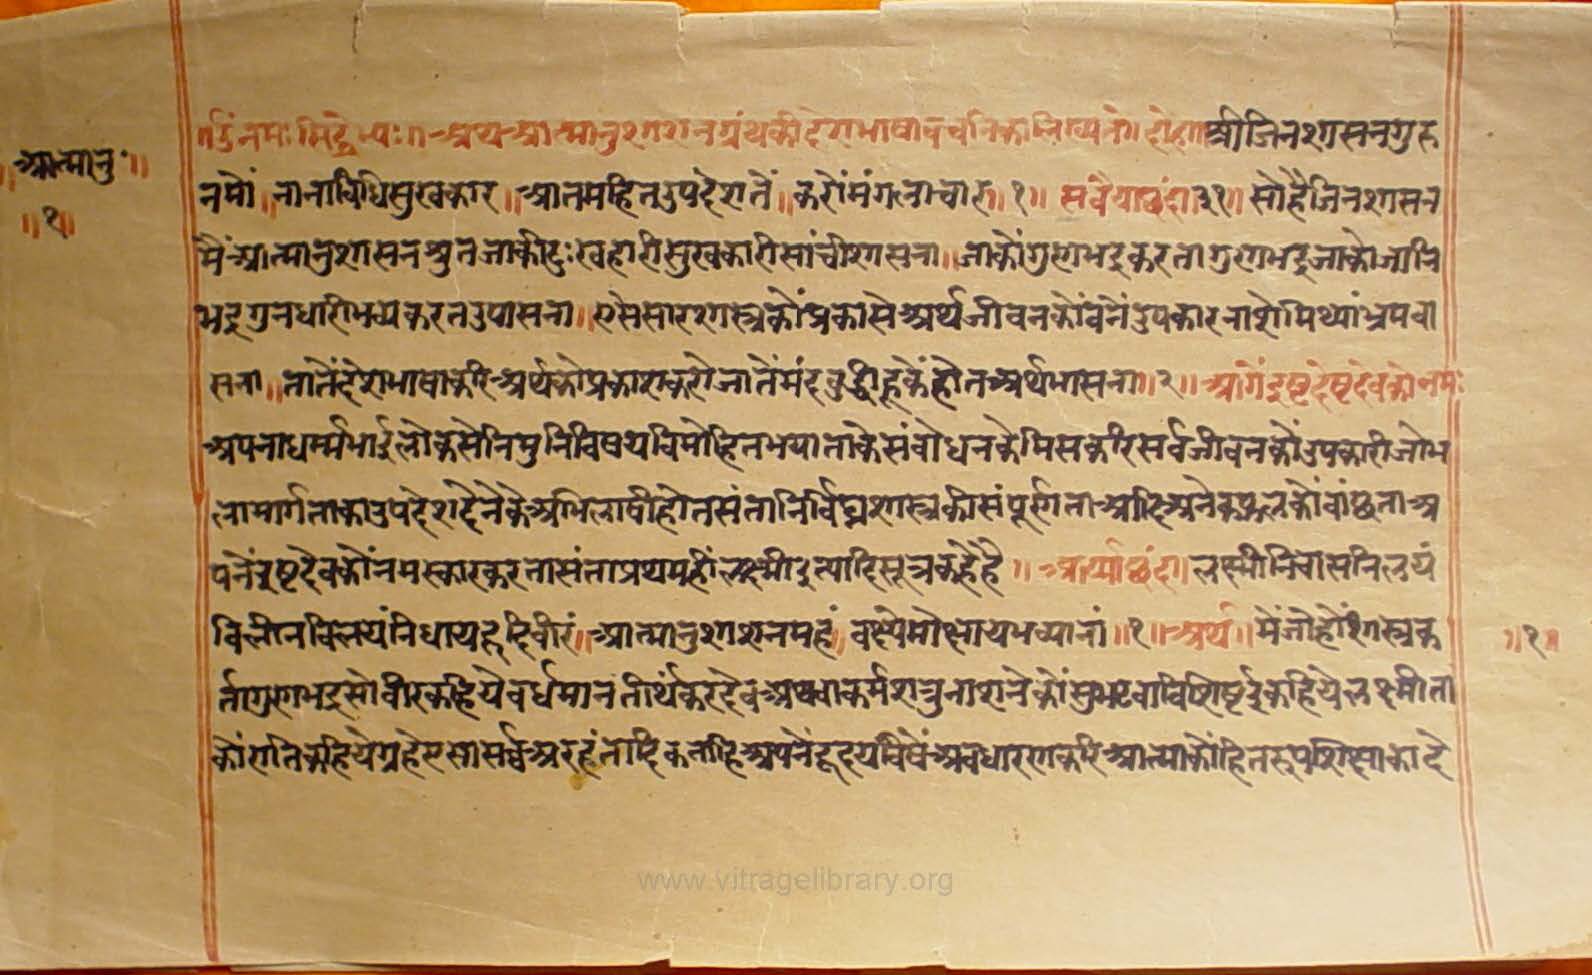 ॥ॐनमःसिद्धेभ्यः॥अथआत्मानुशाशनग्रंथकीदेशभाषावचनिकालिख्यते॥दोहा॥श्रीजिनशासनगुरु
आत्मानु॰॥
नमों॥नानाविधिसुखकार॥आतमहितउपदेशतें॥करोंमंगलाचार॥१॥सवैयाछंद॥३१॥सोहैजिनशासन
॥१॥
मैंआत्मानुशासनश्रुतजाकीदुःखहारीसुखकारीसांचीशासना॥जाकोंगुणभद्रकरतागुणभद्रजाकोजानि
भद्रगुनधारीभव्यकरतउपासना॥एसेसारशास्त्रकोंप्रकासेअर्थजीवनकोंबनेंउपकारनाशेमिथ्यांभ्रमवा
सना॥तातेंदेशभाषाकरिअर्थकोप्रकाशकरोजातेंमंदबुद्धीहूकेंहोतअर्थभासना॥२॥आगेंइष्टदेवकोनमः
अपनाधर्म्मभाईलोकसेनिमुनिविषयविमोहितभयाताकेसंबोधनकेमिसकरिसर्वजीवनकोंउपकारीजोभ
लामार्गताकाउपदेशदेनेकेअभिलाषीहोतसंतानिर्विघ्नशास्त्रकीसंपूर्णताआदिअनेकफलकोंवांछताअ
पनेंइष्टदेवकोंनमस्कारकरतोसंताप्रथमहीलक्ष्मीइत्यादिसूत्रकहैहै॥आर्य्याछंद॥लक्ष्मीनिवासनिलयं
विलीनविलयंनिधायहृदिवीरं॥आत्मानुशाशनमहं॥वक्ष्येमोक्षायभव्यानां॥१॥अर्थ॥मेंजोहोंशास्त्रक
॥१॥
र्तागुणभद्रसोवीरकहियेवर्धमानतीर्थंकरदेवअथवाकर्मशत्रुनाशनेकोंसुभटवाविशिष्टईकहियेलक्ष्मीता
कोंरातिकहियेग्रहेएसासर्वअरहंतादिकताहिअपनेंहृदयविषेंअवधारणकरिआत्माकोंहितरूपशिक्षाकादे
www.vitragelibrary.org